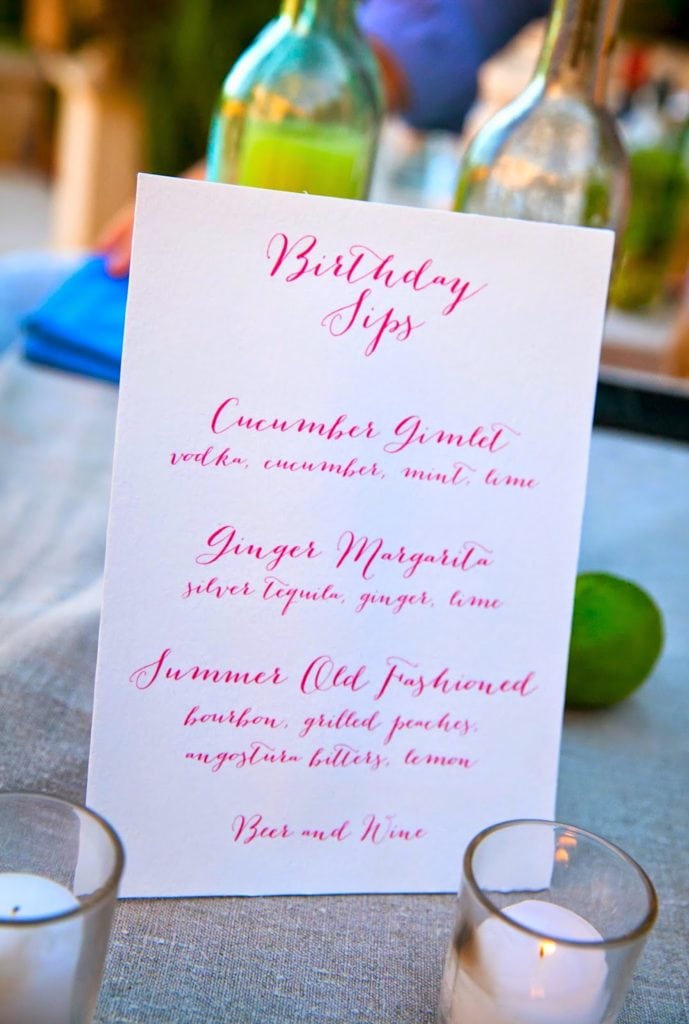 Birthday
Sips
Cucumber Gimlet
vodka, cucumber, mint, lime
Ginger Margarita
silver tequila, ginger, lime
Summer Old Fashioned
bourbon, grilled peaches,
angostura bitters, lemon
Beer and Wine